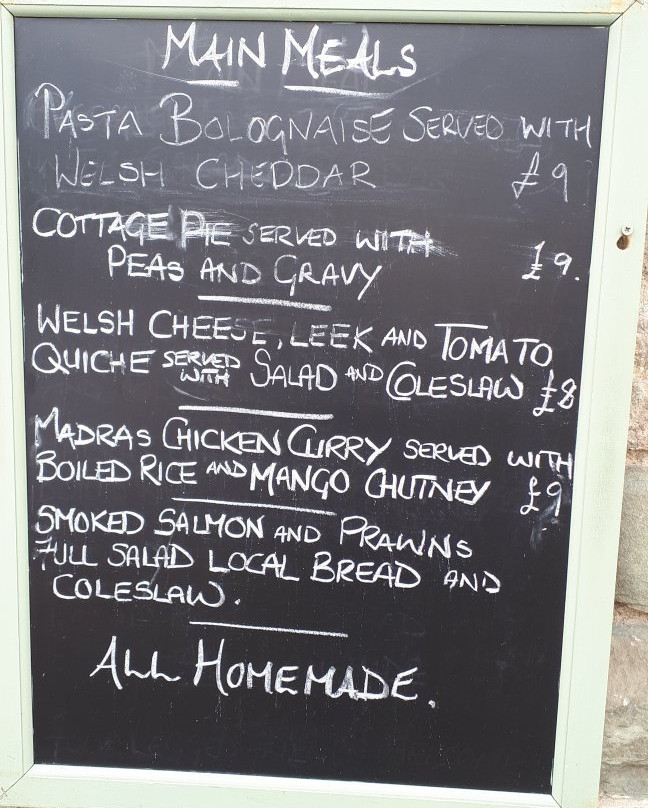 MAIN MEALS
PASTA BOLOGNAISE SERVED WITH
WELSH CHEDDAR £9
COTTAGE PIE SERVED WITH
PEAS AND GRAVY £9.
WELSH CHEESE, LEEK AND TOMATO
QUICHE SERVED WITH SALAD AND COLESLAW £8
MADRAS CHICKEN CURRY SERVED WITH
BOILED RICE AND MANGO CHUTNEY £9
SMOKED SALMON AND PRAWNS
FULL SALAD LOCAL BREAD AND
COLESLAW.
ALL HOMEMADE.